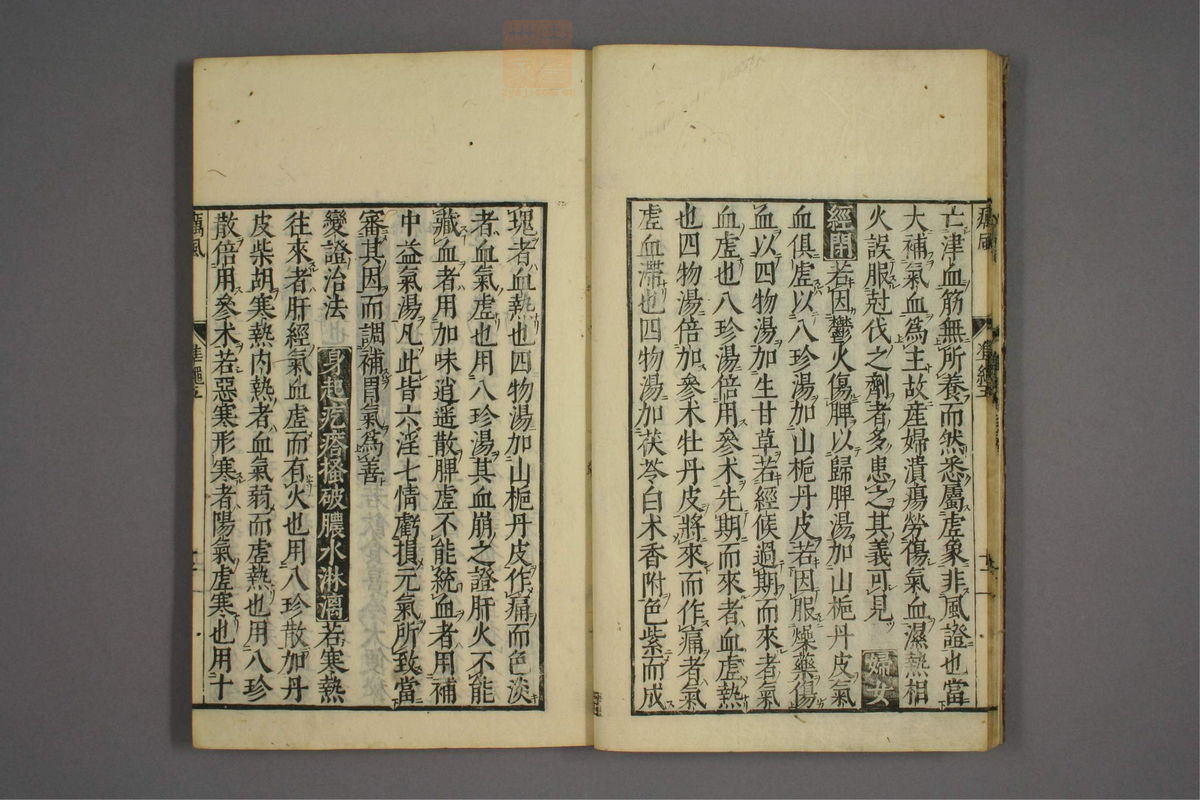 亡津血筋無所養而然悉屬虛象非風證也當
大補氣血爲主故産婦潰瘍勞傷氣血濕熱相
火誤服尅伐之劑者多患之其義可見 婦女
經閉若因鬱火傷脾以歸脾湯加山梔丹皮氣
血俱虛以八珍湯加山梔丹皮若因服燥藥傷
血以四物湯加生甘草若經候過期而來者氣
血虛也八珍湯倍用參朮先期而來者血虛熱
也四物湯倍加參朮牡丹皮將來而作痛者氣
虛血滯也四物湯加茯苓白朮香附色紫而成
塊者血熱也四物湯加山梔丹皮作痛而色淡
者血氣虛也用八珍湯其血崩之證肝火不能
藏血者用加味逍遥散脾虛不能統血者用補
中益氣湯凡此皆六淫七情虧損元氣所致當
審其因而調補胃氣爲善
變證治法 身起疙瘩搔破膿水淋漓若寒熱
往來者肝經氣血虛而有火也用八珍散加丹
皮柴胡寒熱内熱者血氣弱而虛熱也用八珍
散倍用參朮若惡寒形寒者陽氣虛寒也用十
癘風
準繩五